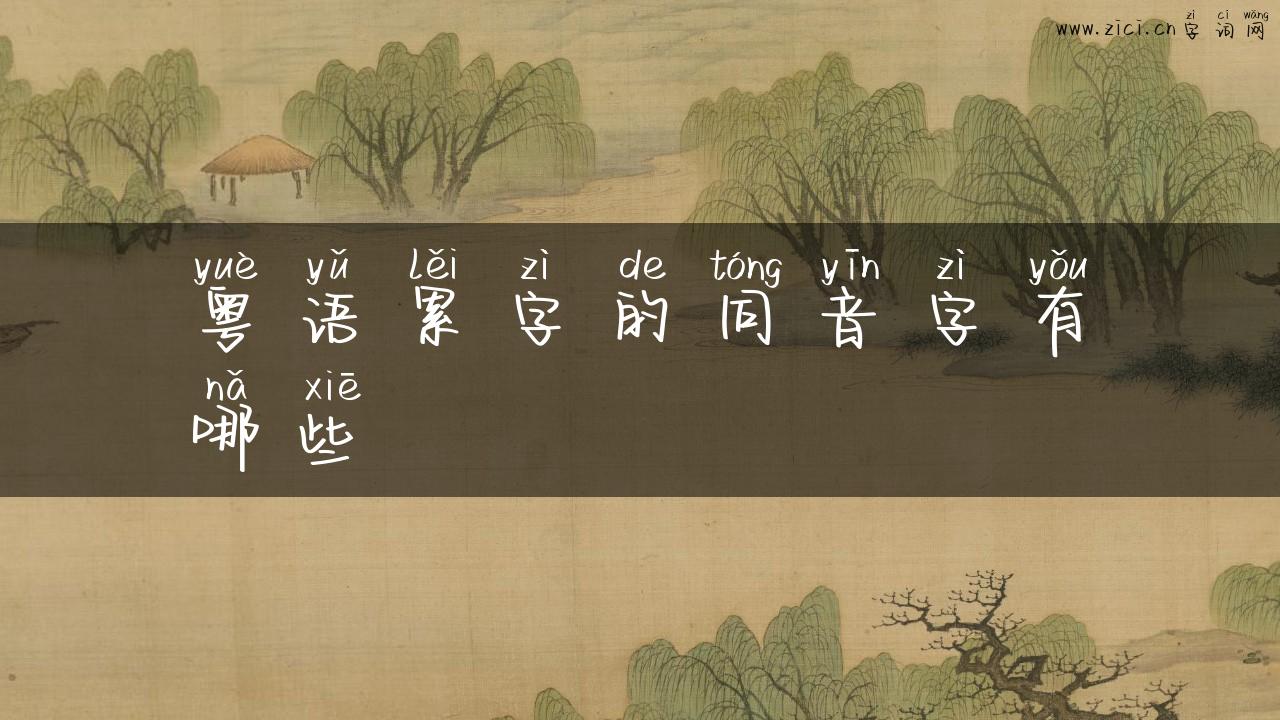 zì cí wǎng
www.zici.cn 字词网
yuè yǔ lěi zì de tóng yīn zì yǒu
粤语累字的同音字有
nǎ xiē
哪些